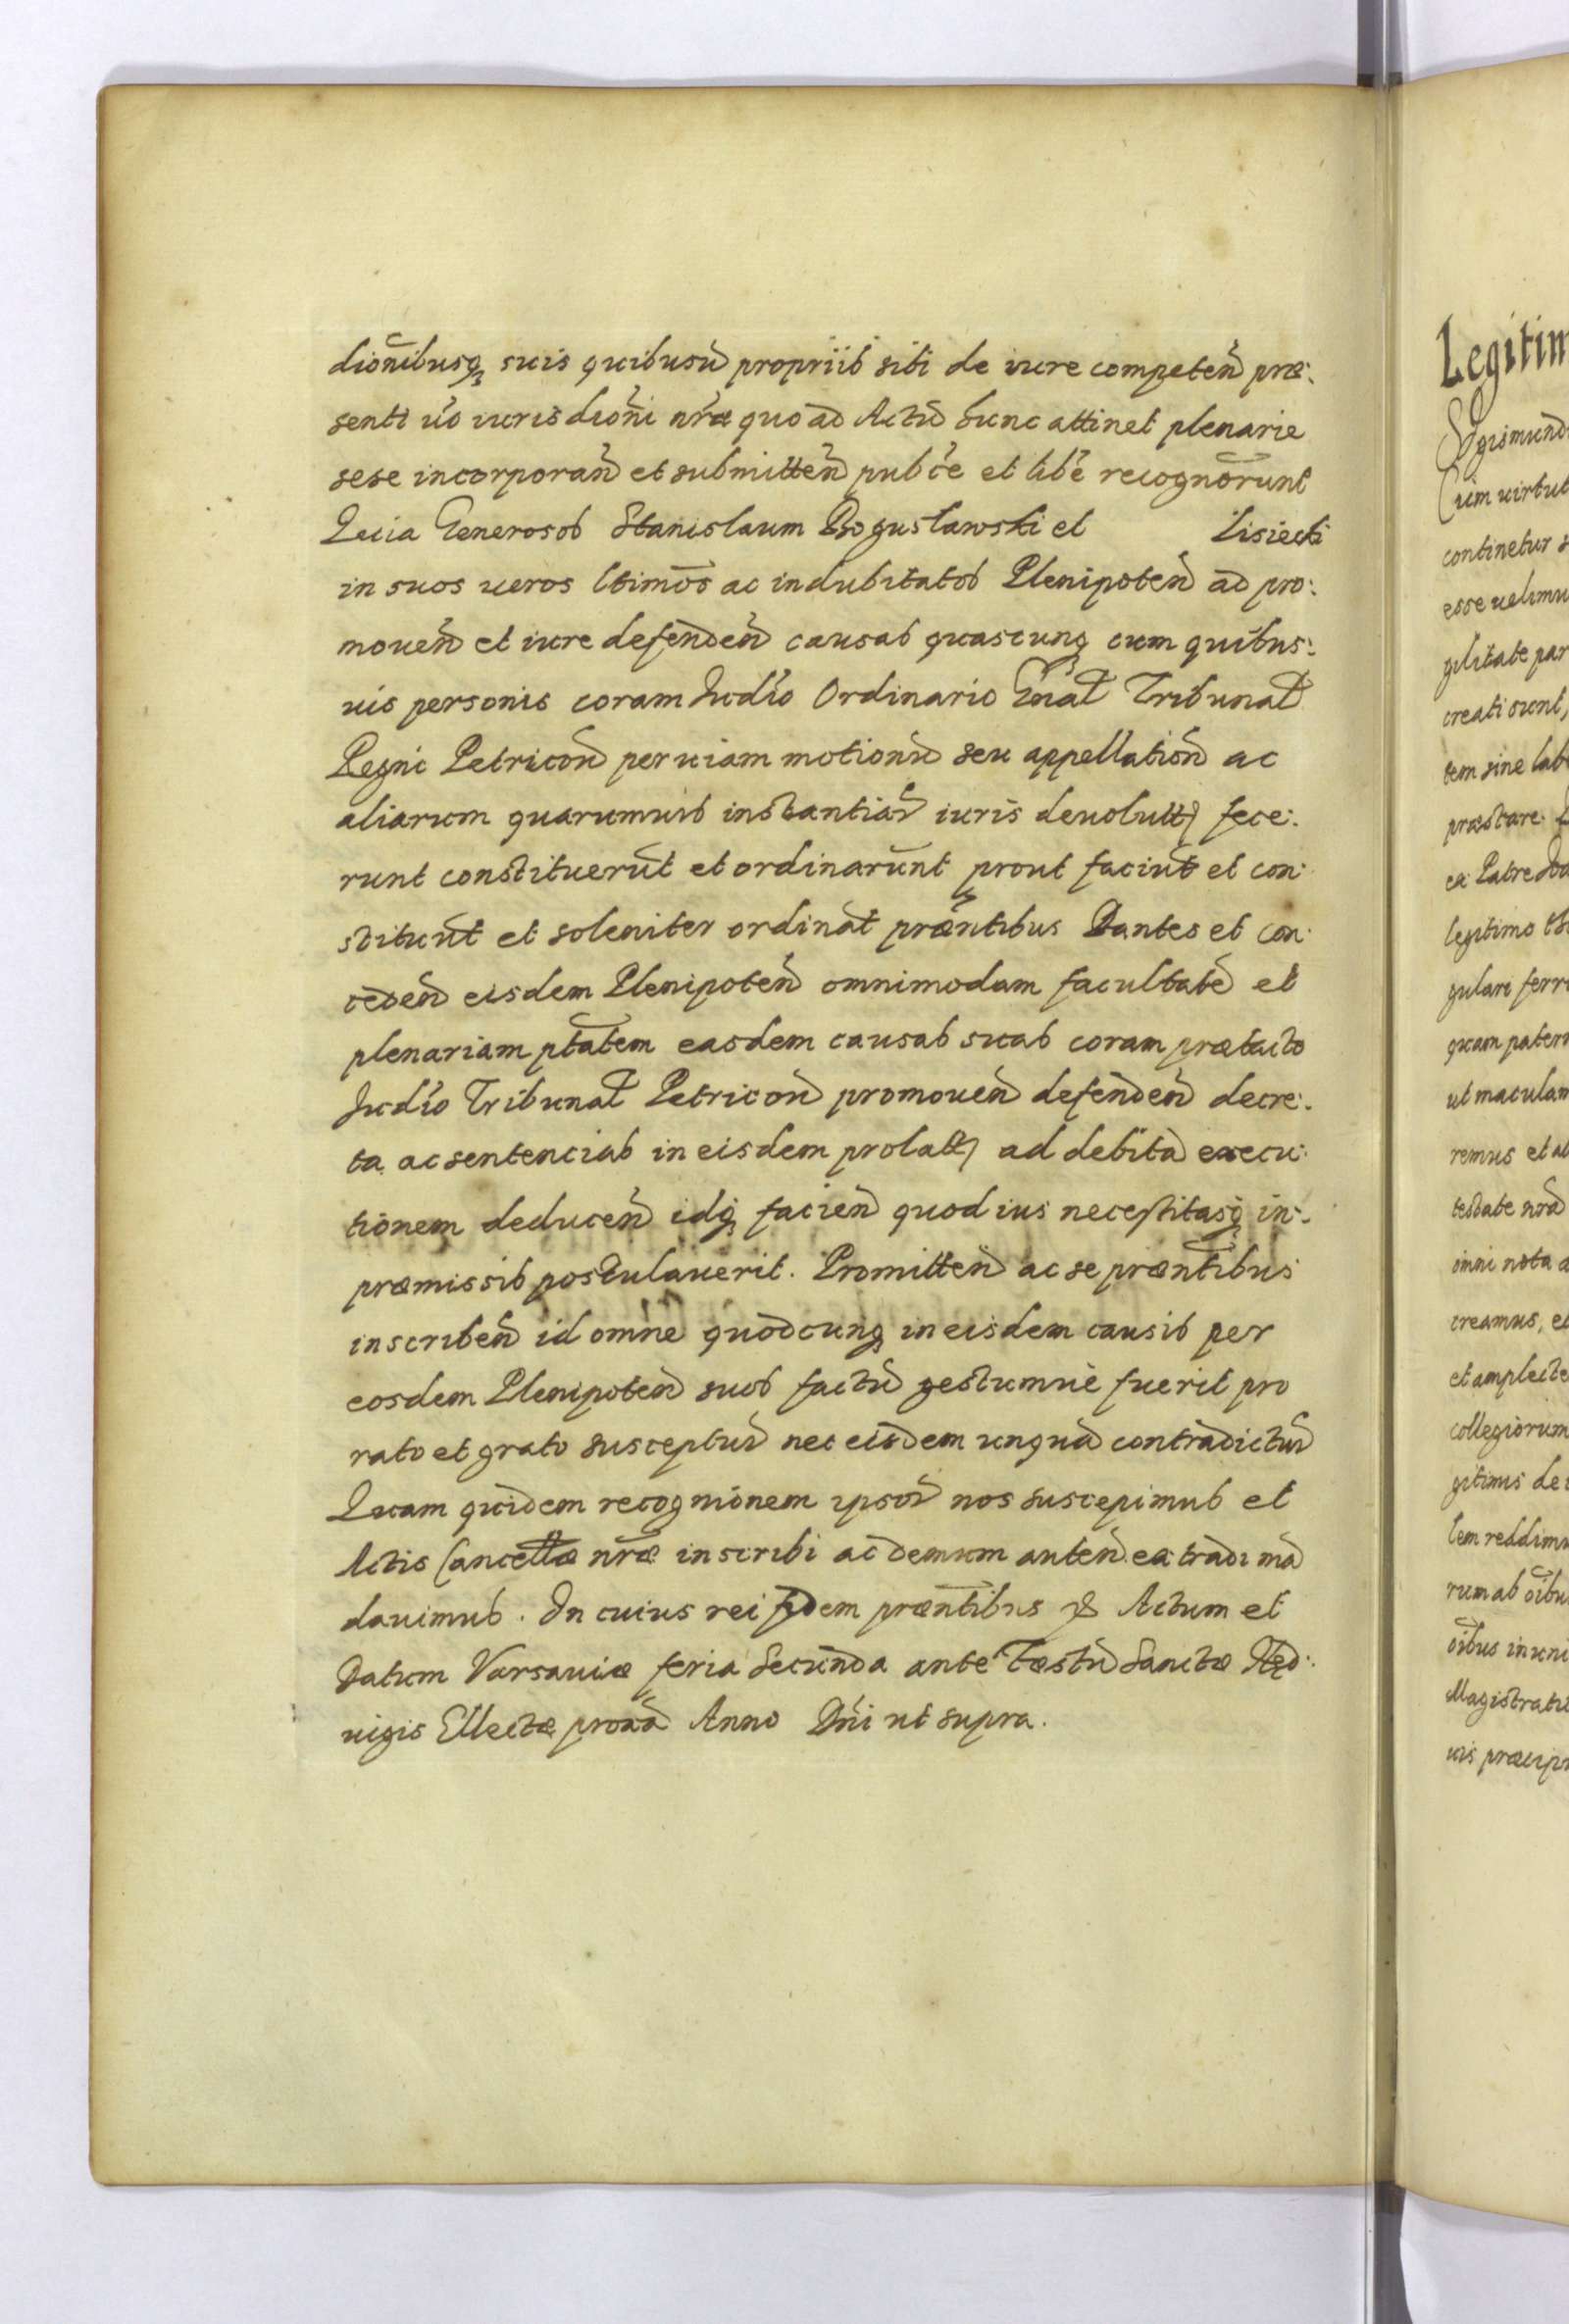 dion̄ibusq; suis quibusū propriis sibi de iure competen̄ præ:
senti ūo iurisdion̄i nr̄æ quo ad Actū hunc attinet plenarie
sese incorporan̄ et submitten̄ pub̄ce et lib̄e recognōrunt
Quia Generosos Stanislaum Boguslawski et Lisiecki
in suos ueros ltimōs ac indubitatos Plenipoten̄ ad pro:
mouen̄ et iure defenden̄ causas quascunq; cum quibus:
uis personis coram Iudīo Ordinario Gn̄al Tribunal
Regni Petricon̄ per uiam motionū seu appellation̄ ac
aliarum quarumuis instantiar̄ iuris deuolutt fece:
runt constituerūt et ordinarūnt prout faciūt et con:
stituūt et soleniter ordināt præn̄tibus Dantes et con:
ceden̄ eisdem Plenipoten̄ omnimodam facultatē et
plenariam ptātem easdem causas suas coram prætacto
Iudīo Tribunal Petricon̄ promouen̄ defenden̄ decre:
ta ac sentencias in eisdem prolatt ad debitā execu:
tionem deducen̄ idq; facien̄ quod ius necessitasq; in:
præmissis postulauerit. Promitten̄ ac se præn̄tibus
inscriben̄ id omne quodcunq; in eisdem causis per
eosdem Plenipoten̄ suos factū gestumue fuerit pro
rato et grato susceptur̄ nec eisdem unquā contradictur̄
Quam quidem recognionem ipsor̄ nos suscepimus et
Actis Cancellæ nr̄æ inscribi ac demum auten̄ extradi mā
dauimus. In cuius rei fidem præn̄tibus & Actum et
Datum Varsauiæ feria Secunda ante Fæstū Sanctæ Hed:
uigis Ellectæ proxā Anno Dn̄i ut supra.
Legitim
Sigismund
Cum uirtut
continetur s
esse uelimu
gilitate par
creati sunt,
tem sine lab
præstare.
ex Patre Ioa
legitimo th
gulari ferr
quam pater
ut maculam
remus et ab
testate nrā
omni nota a
creamus, et
et amplecte
collegiorum
gitimis de
lem reddimu
rum ab oību
oībus in uni
Magistratu
uis præcip